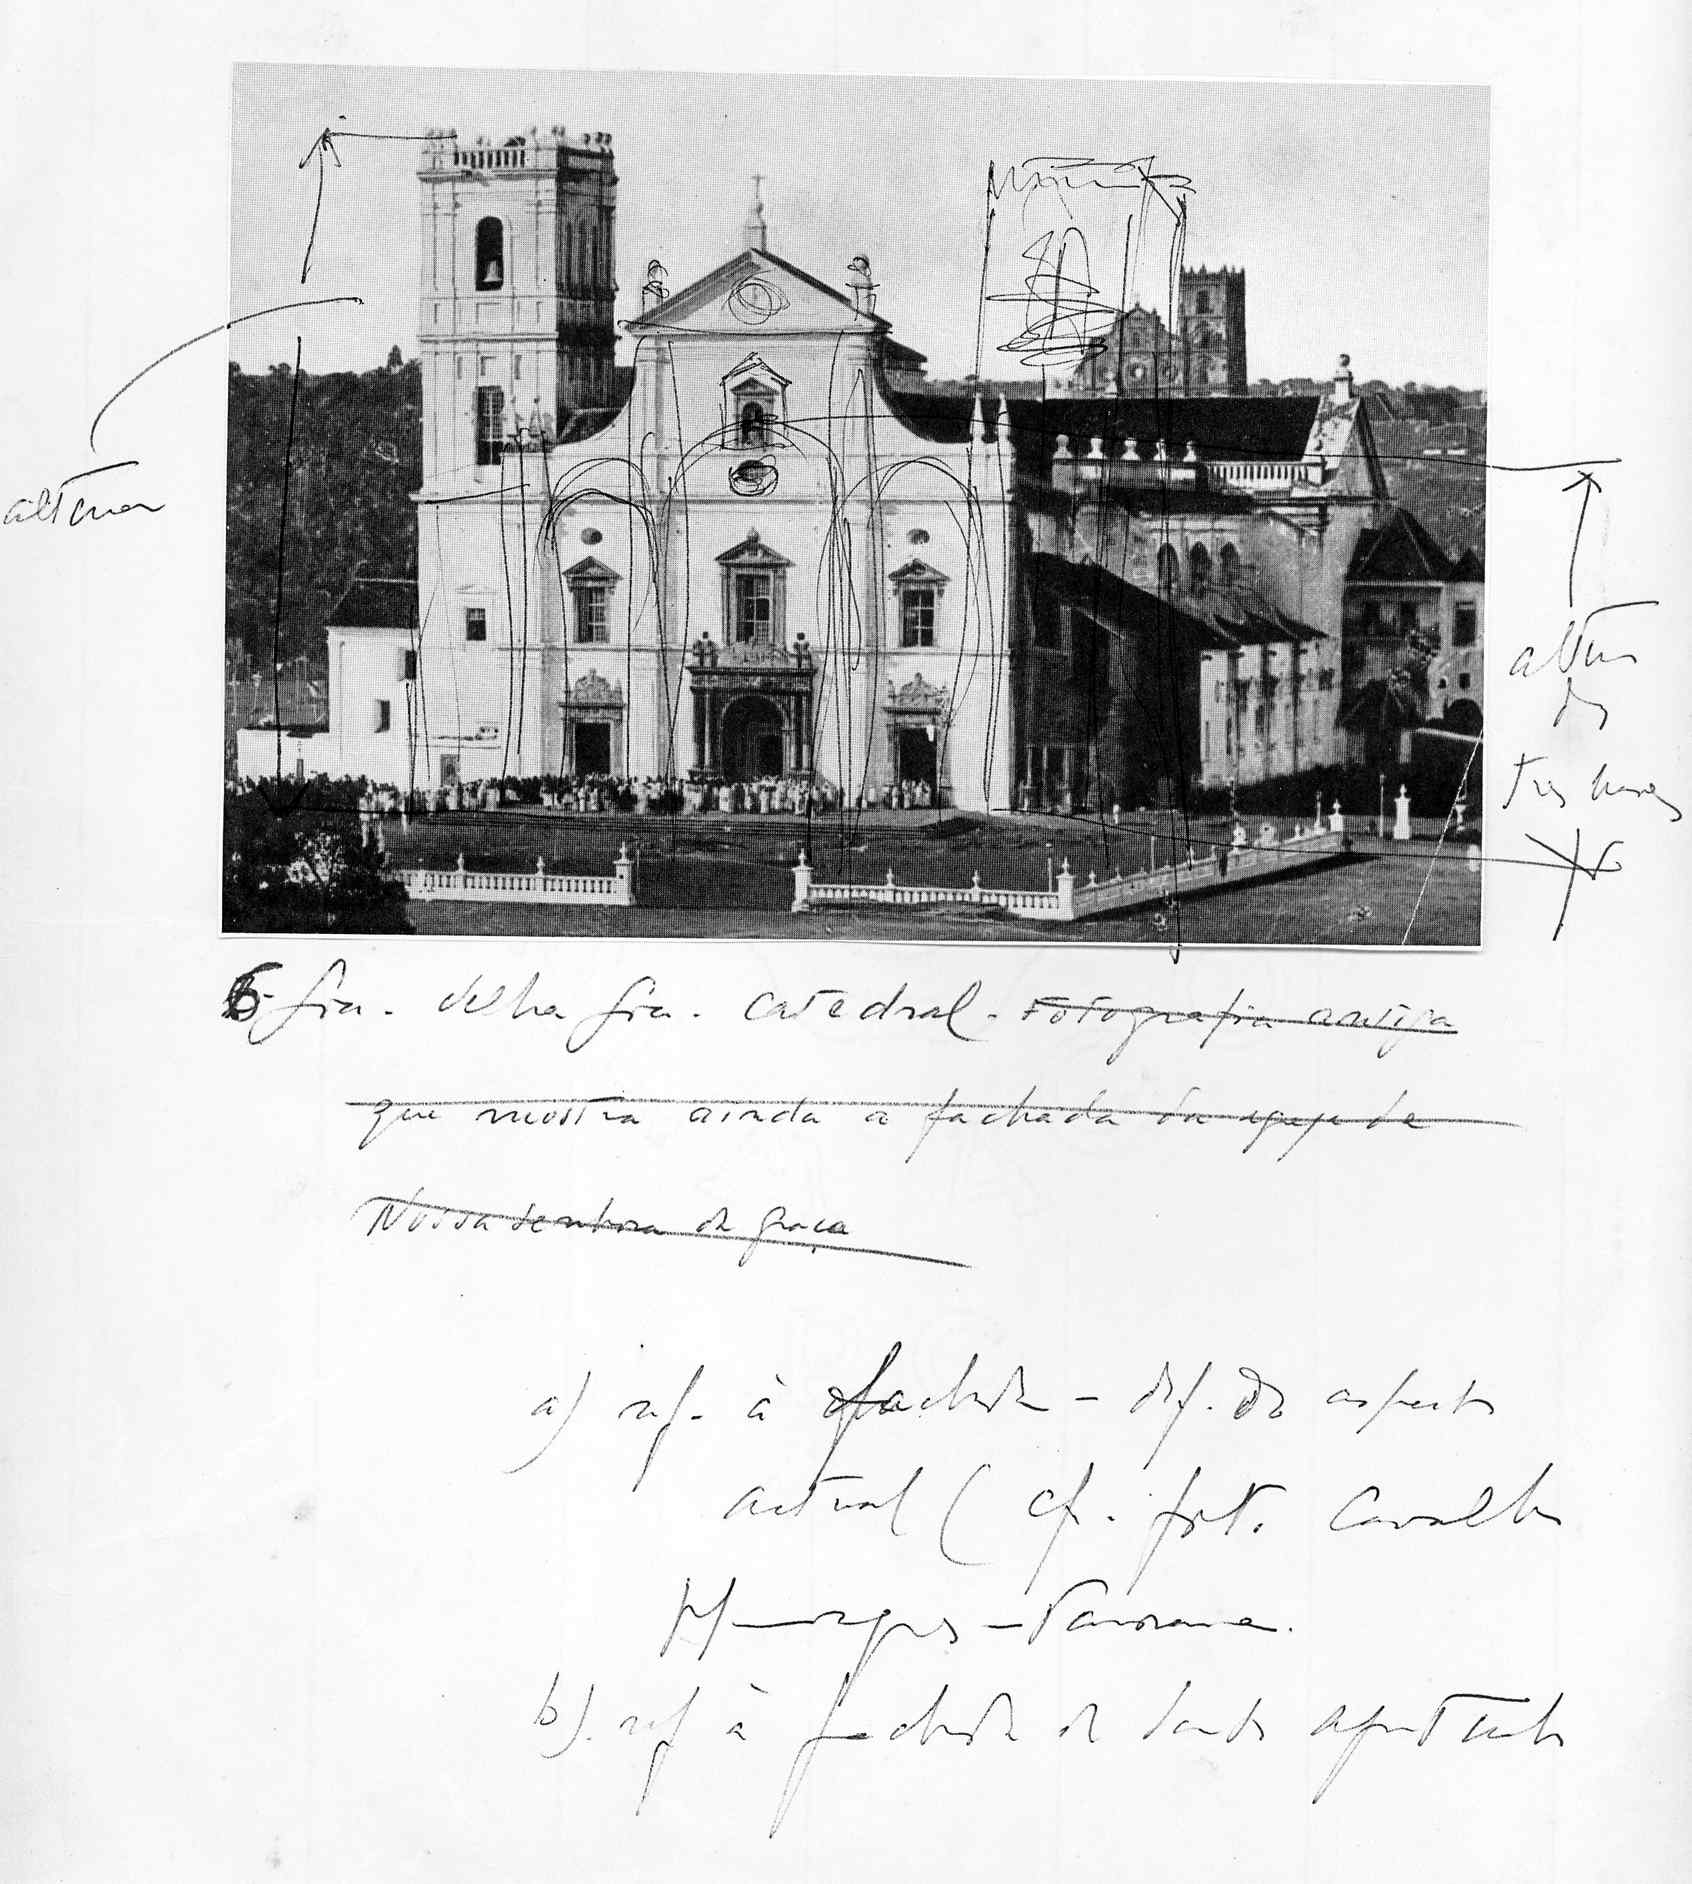 altura
altura
das
tres naves
6- Goa. Velha Goa. Catedral. Fotografia antiga
que mostra ainda a fachada da igreja de
Nossa Senhora da Graça
a) ref. à fachada - dif. do aspecto
actual (cf. fot. Carvalho
Henriques - Panorama.
b). ref à fachada de Santo Agostinho